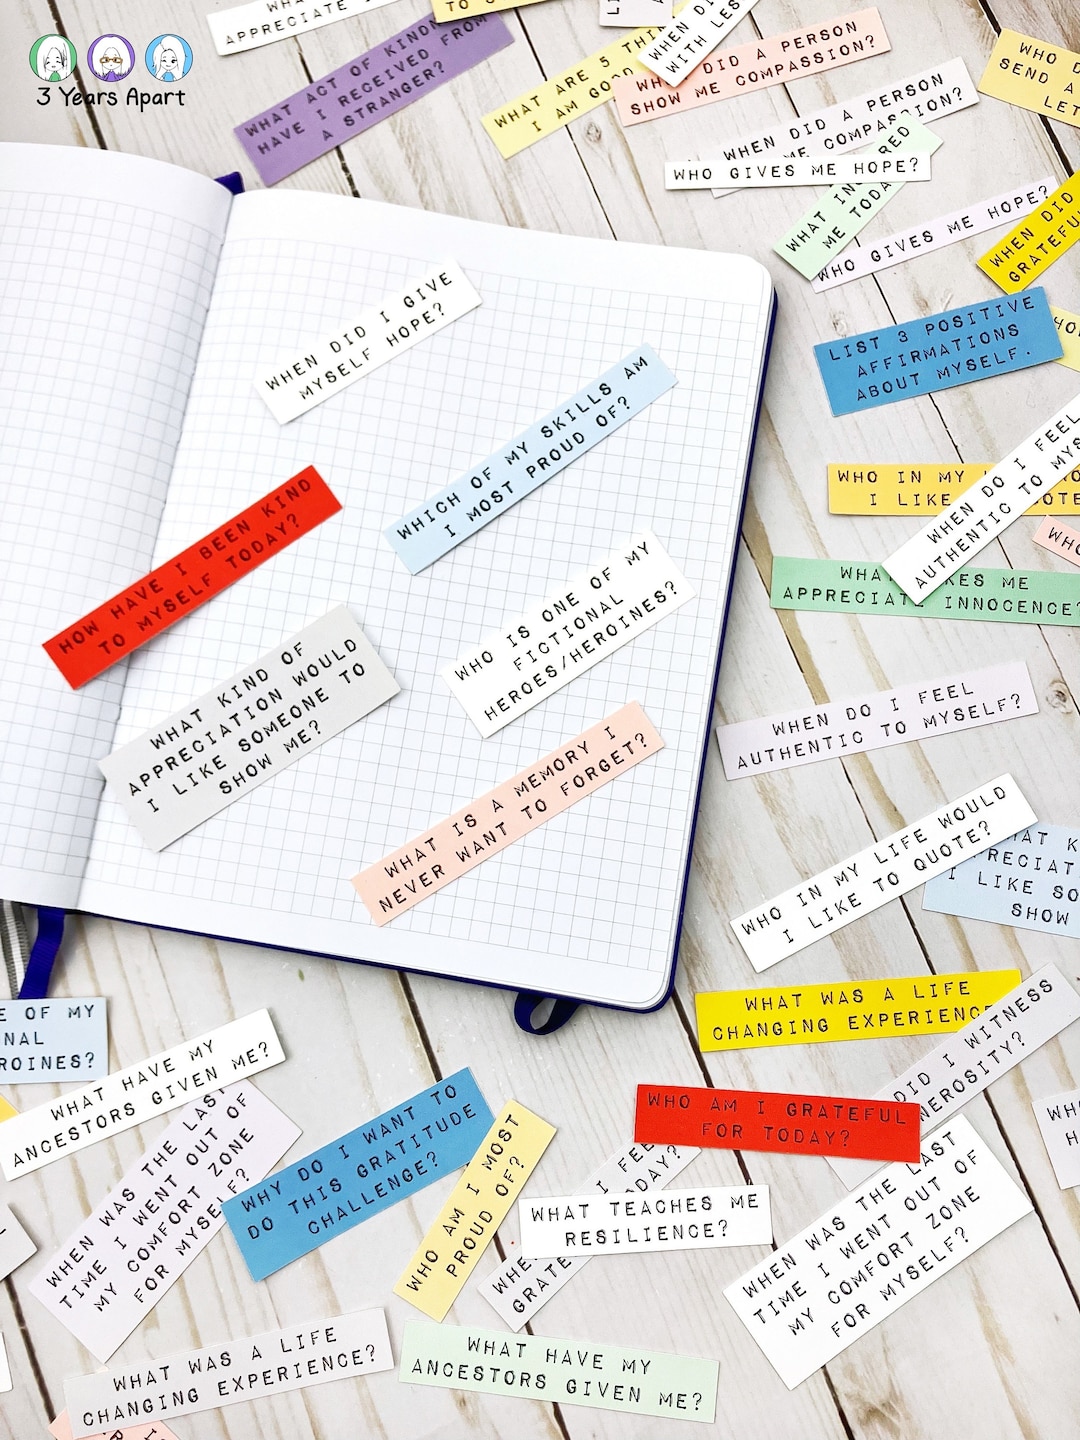 3 Years Apart
APPRECIATE
WHAT ACT OF KINDN
HAVE I RECEIVED FROM
A STRANGER?
WHAT ARE 5 THI
I AM GOOD
WHEN DI
WITH LES
DID A PERSON
SHOW ME COMPASSION?
WHO D
SEND A
LET
WHEN DID A PERSON
ME COMPASSION?
WHO GIVES ME HOPE?
WHAT IN RED
ME TODA
WHO GIVES ME HOPE?
WHEN DID
GRATEFU
LIST 3 POSITIVE
AFFIRMATIONS
ABOUT MYSELF.
WHEN DID I GIVE
MYSELF HOPE?
WHICH OF MY SKILLS AM
I MOST PROUD OF?
HOW HAVE I BEEN KIND
TO MYSELF TODAY?
WHO IS ONE OF MY
FICTIONAL
HEROES/HEROINES?
WHAT KIND OF
APPRECIATION WOULD
I LIKE SOMEONE TO
SHOW ME?
WHAT IS A MEMORY I
NEVER WANT TO FORGET?
WHO IN MY
I LIKE OTE
WHEN DO I FEEL
AUTHENTIC TO MYS
WHO
WHA KES ME
APPRECIATE INNOCENCE?
WHEN DO I FEEL
AUTHENTIC TO MYSELF?
WHO IN MY LIFE WOULD
I LIKE TO QUOTE?
AT K
RECIAT
I LIKE SO
SHOW
WHAT WAS A LIFE
CHANGING EXPERIENC
DID I WITNESS
NEROSITY?
E OF MY
NAL
ROINES?
WHAT HAVE MY
ANCESTORS GIVEN ME?
WHEN WAS THE LAST
TIME I WENT OUT OF
MY COMFORT ZONE
FOR MYSELF?
WHY DO I WANT TO
DO THIS GRATITUDE
CHALLENGE?
WHO AM I MOST
PROUD OF?
WHO AM I GRATEFUL
FOR TODAY?
I FEE
GRATE ODAY?
WHAT TEACHES ME
RESILIENCE?
WHEN WAS THE LAST
TIME I WENT OUT OF
MY COMFORT ZONE
FOR MYSELF?
WHAT WAS A LIFE
CHANGING EXPERIENCE?
WHAT HAVE MY
ANCESTORS GIVEN ME?